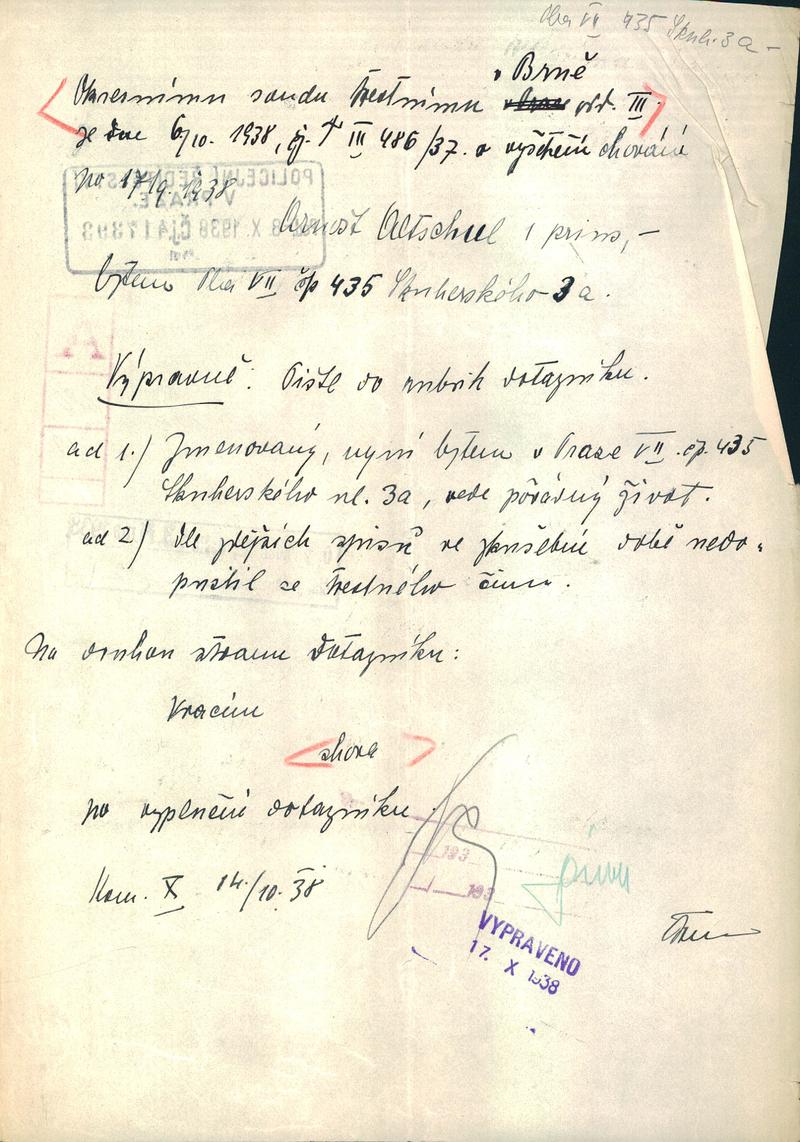 Pha VII 435 Skuh. 3a –
v Brně
Okresnímu soudu trestnímu odd. III
ze dne 6/10. 1938, čj. T III 486/37. o vyšetření chování
po 17/9. 1938
POLICEJNÍ ŘEDITELSTVÍ
V PRAZE.
X. 1938 ČJ 417393
Arnošt Altschul 1 prius, –
bytem Pha VII čp 435 Skuherského 3a.
Výpravně: Pište do rubrik dotazníku.
ad 1./ Jmenovaný, nyní bytem v Praze VII. čp. 435
Skuherského ul. 3a, vede pořádný život.
ad 2/ dle zdějších spisů ve zkušební době nedo-
pustil se trestného činu.
Na druhou stranu dotazníku:
Vracím
shora
po vyplnění dotazníku.
193
193
Kom. X 14/10. 38
VYPRAVENO
17. X 1938